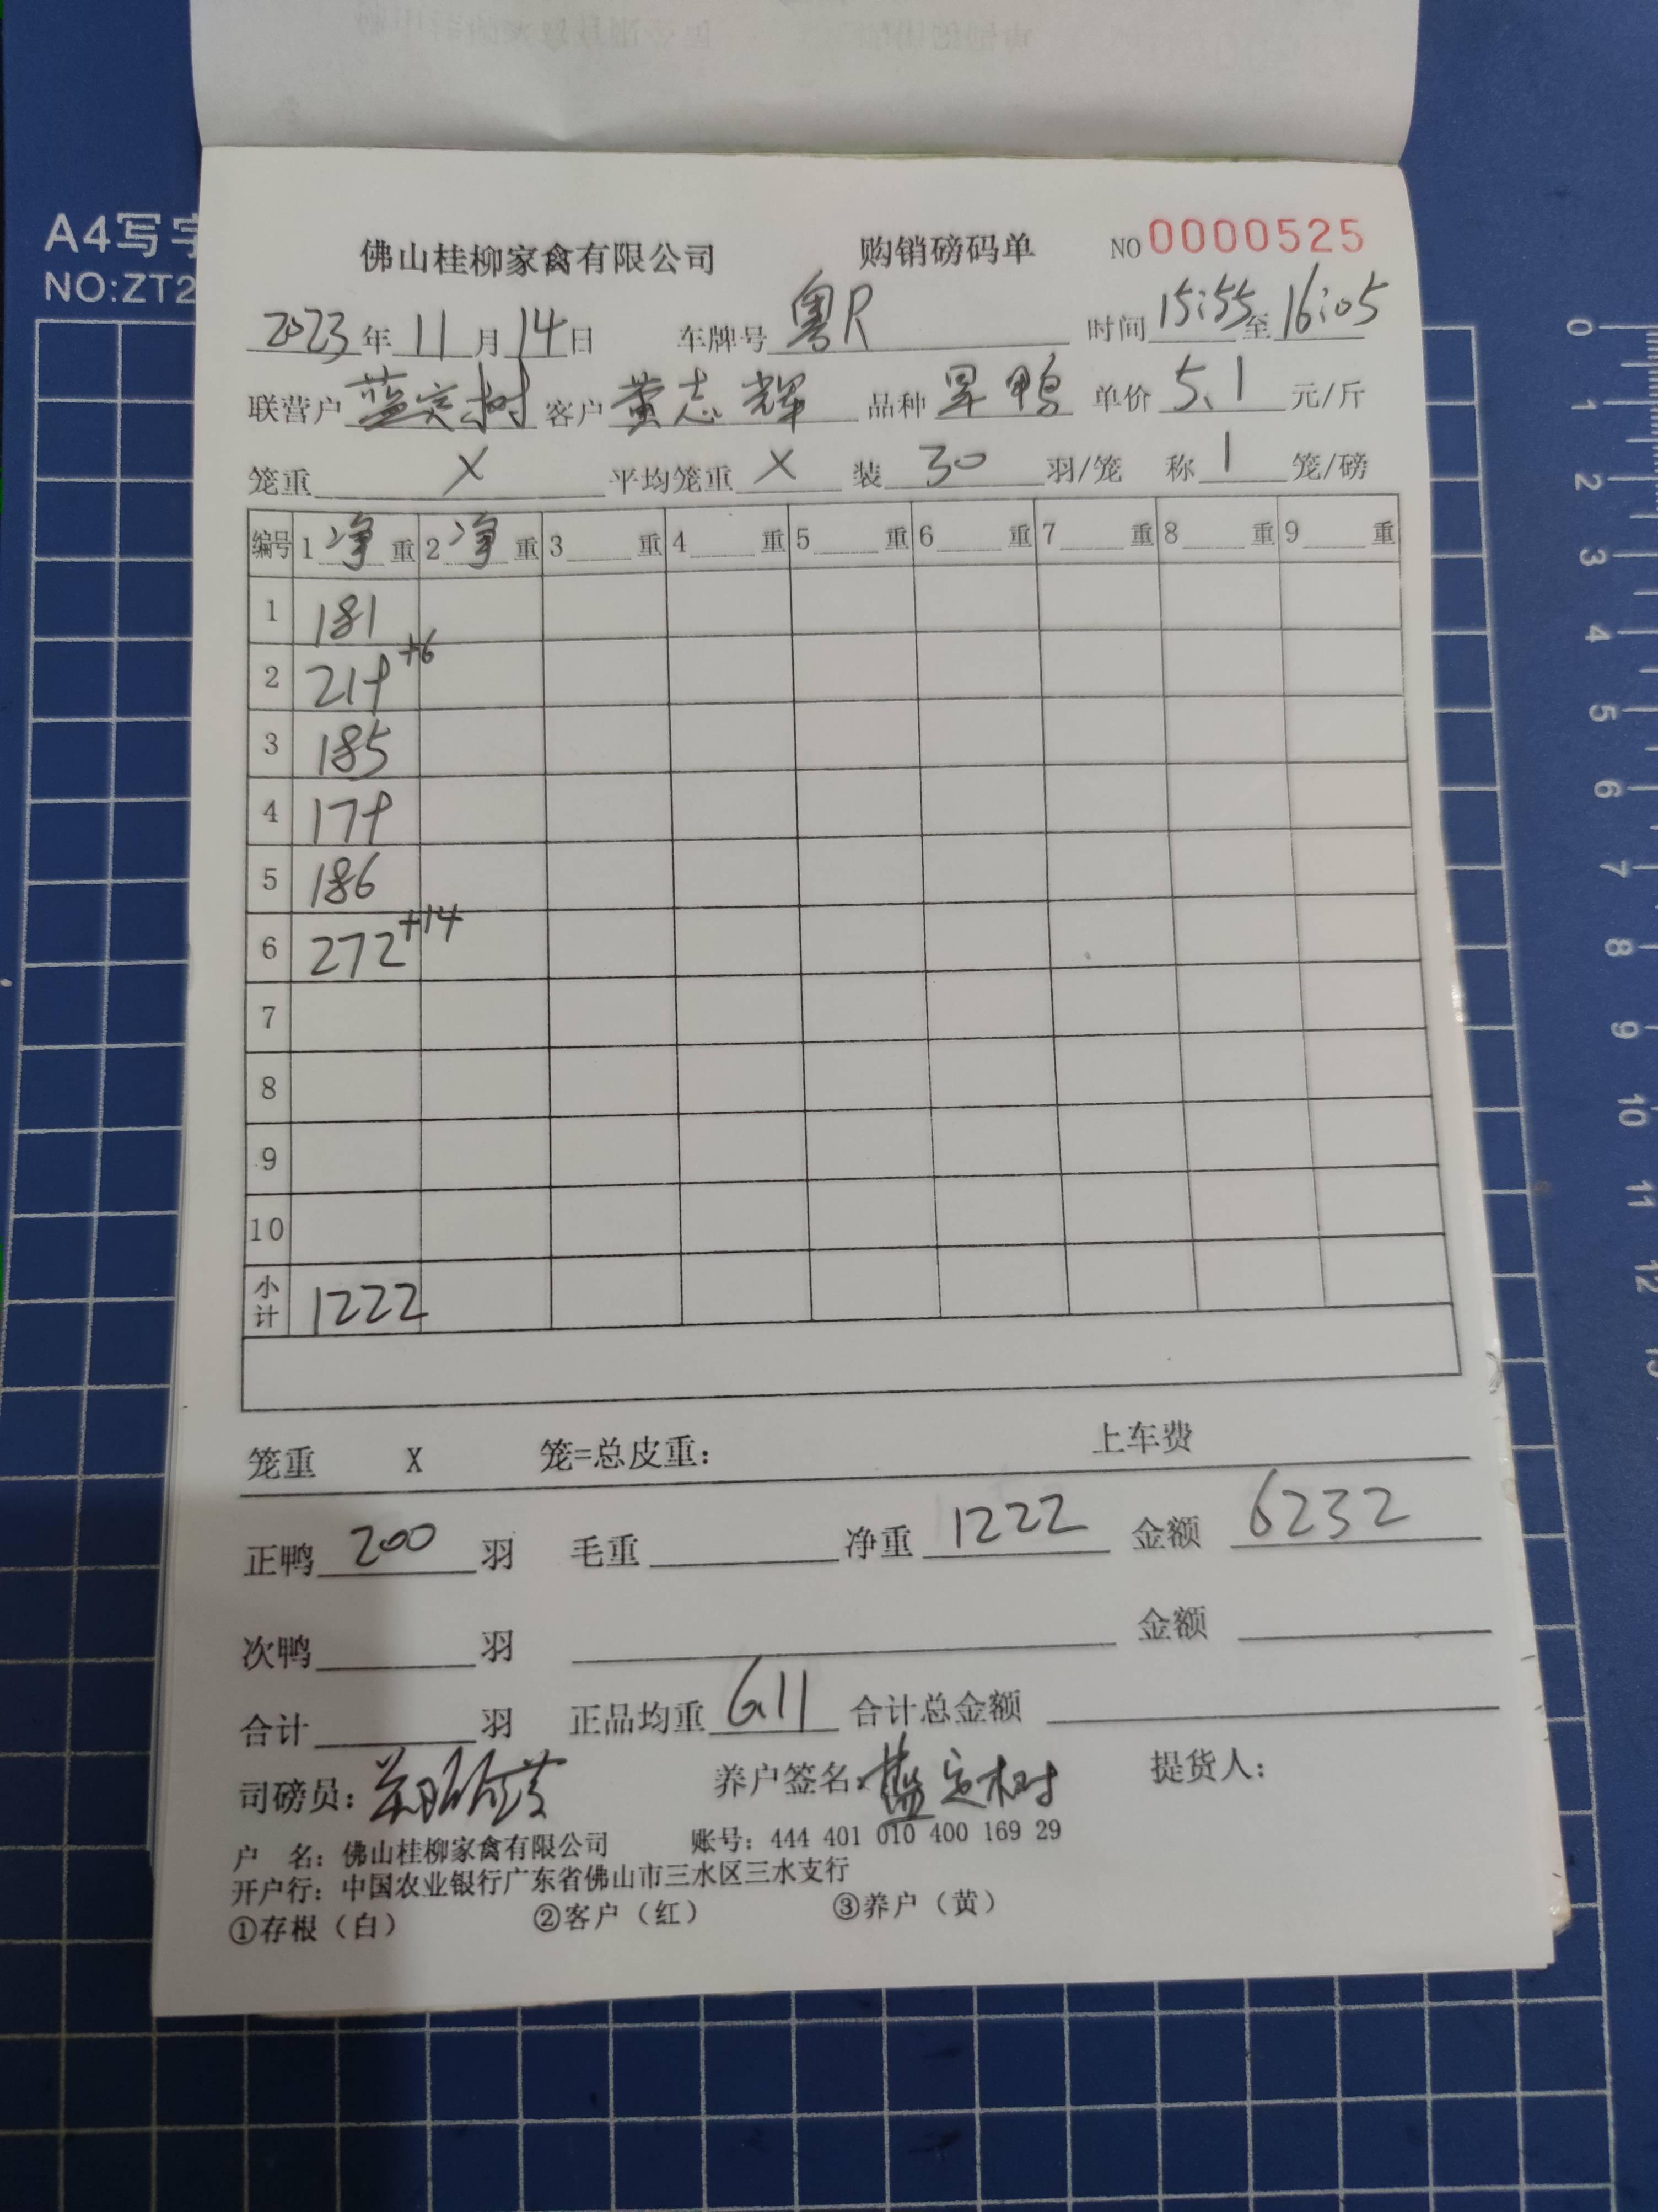 A4写字
NO:ZT2
佛山桂柳家禽有限公司 购销磅码单 NO 0000525
2023年11月14日 车牌号 粤R 时间 15:55 至 16:05
联营户 蓝定树 客户 黄志辉 品种 旱鸭 单价 5.1 元/斤
笼重 X 平均笼重 X 装 30 羽/笼 称 1 笼/磅
编号 1 净 重 2 净 重 3 重 4 重 5 重 6 重 7 重 8 重 9 重
1 181
2 219 +6
3 185
4 179
5 186
6 272 +14
7
8
9
10
小计 1222
笼重 X 笼=总皮重： 上车费
正鸭 200 羽 毛重 净重 1222 金额 6232
次鸭 羽 金额
合计 羽 正品均重 6.11 合计总金额
司磅员： 养户签名： 蓝定树 提货人：
户 名：佛山桂柳家禽有限公司 账号：444 401 010 400 169 29
开户行：中国农业银行广东省佛山市三水区三水支行
①存根（白） ②客户（红） ③养户（黄）
0
1
2
3
4
5
6
7
8
9
10
11
12